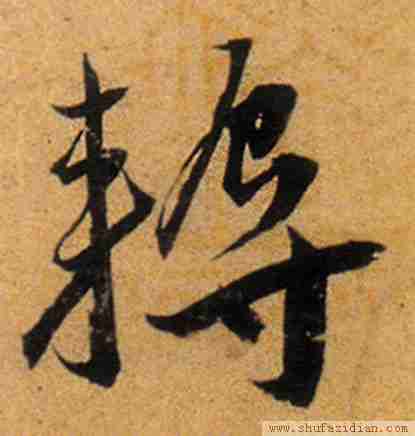 耨
www.shufazidian.com